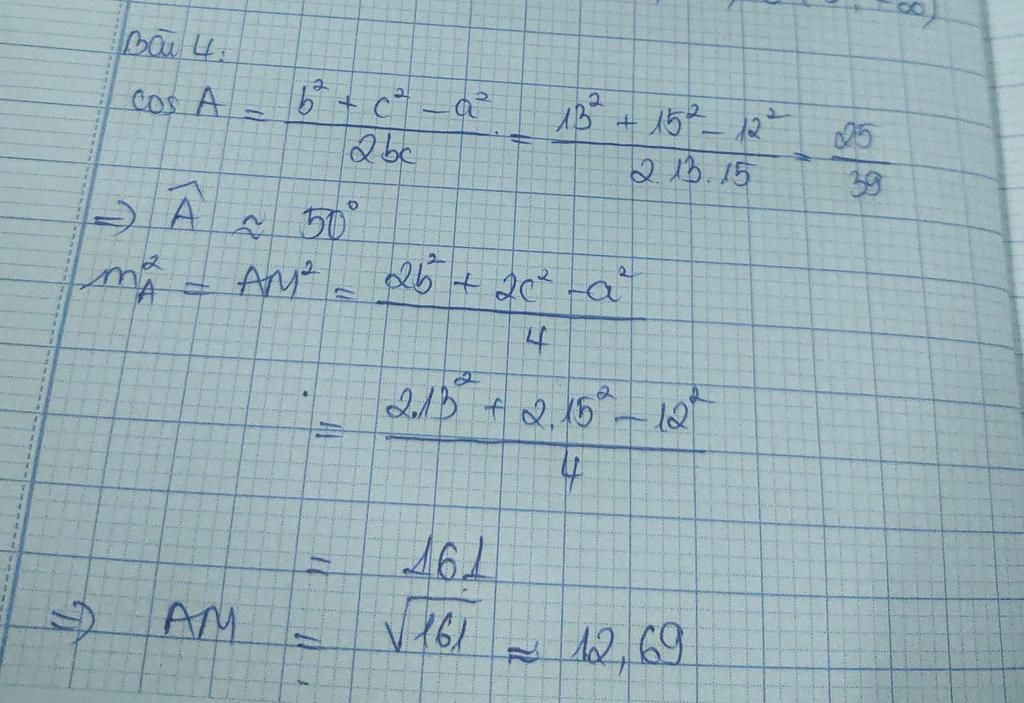 ∞)
Bài 4:
cos A = (b² + c² - a²)/(2bc) = (13² + 15² - 12²)/(2.13.15) = 25/39
=> Â ≈ 50°
m²_A = AM² = (2b² + 2c² - a²)/4
= (2.13² + 2.15² - 12²)/4
= 161
=> AM = √161 ≈ 12,69